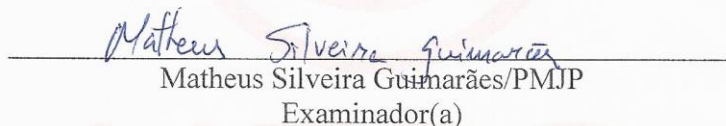 Matheus Silveira Guimarães
Matheus Silveira Guimarães/PMJP
Examinador(a)